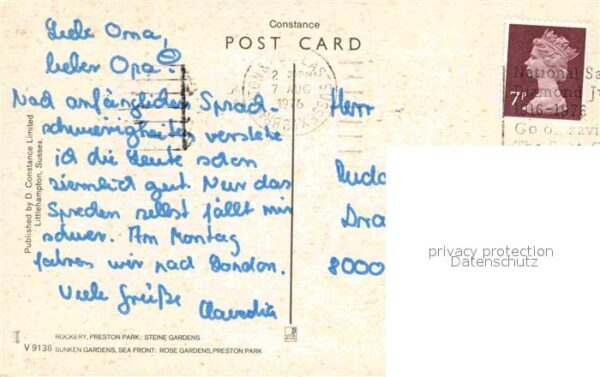 Constance
POST CARD
Liebe Oma,
lieber Opa!
Nach anfänglichen Sprach-
schwierigkeiten verstehe
ich die Leute schon
ziemlich gut. Nur das
Sprechen selbst fällt mir
schwer. Am Montag
fahren wir nach London.
Viele Grüße Claudia
Published by D. Constance Limited
Littlehampton, Sussex.
ROCKERY, PRESTON PARK: STEINE GARDENS
V 9138 SUNKEN GARDENS, SEA FRONT: ROSE GARDENS, PRESTON PARK
EAST SUSSEX
2
7 AUG
1976
7P
National Sa
Diamond Ju
1916-1976
Go on savi
Herr
Rudo
Dra
8000
privacy protection
Datenschutz